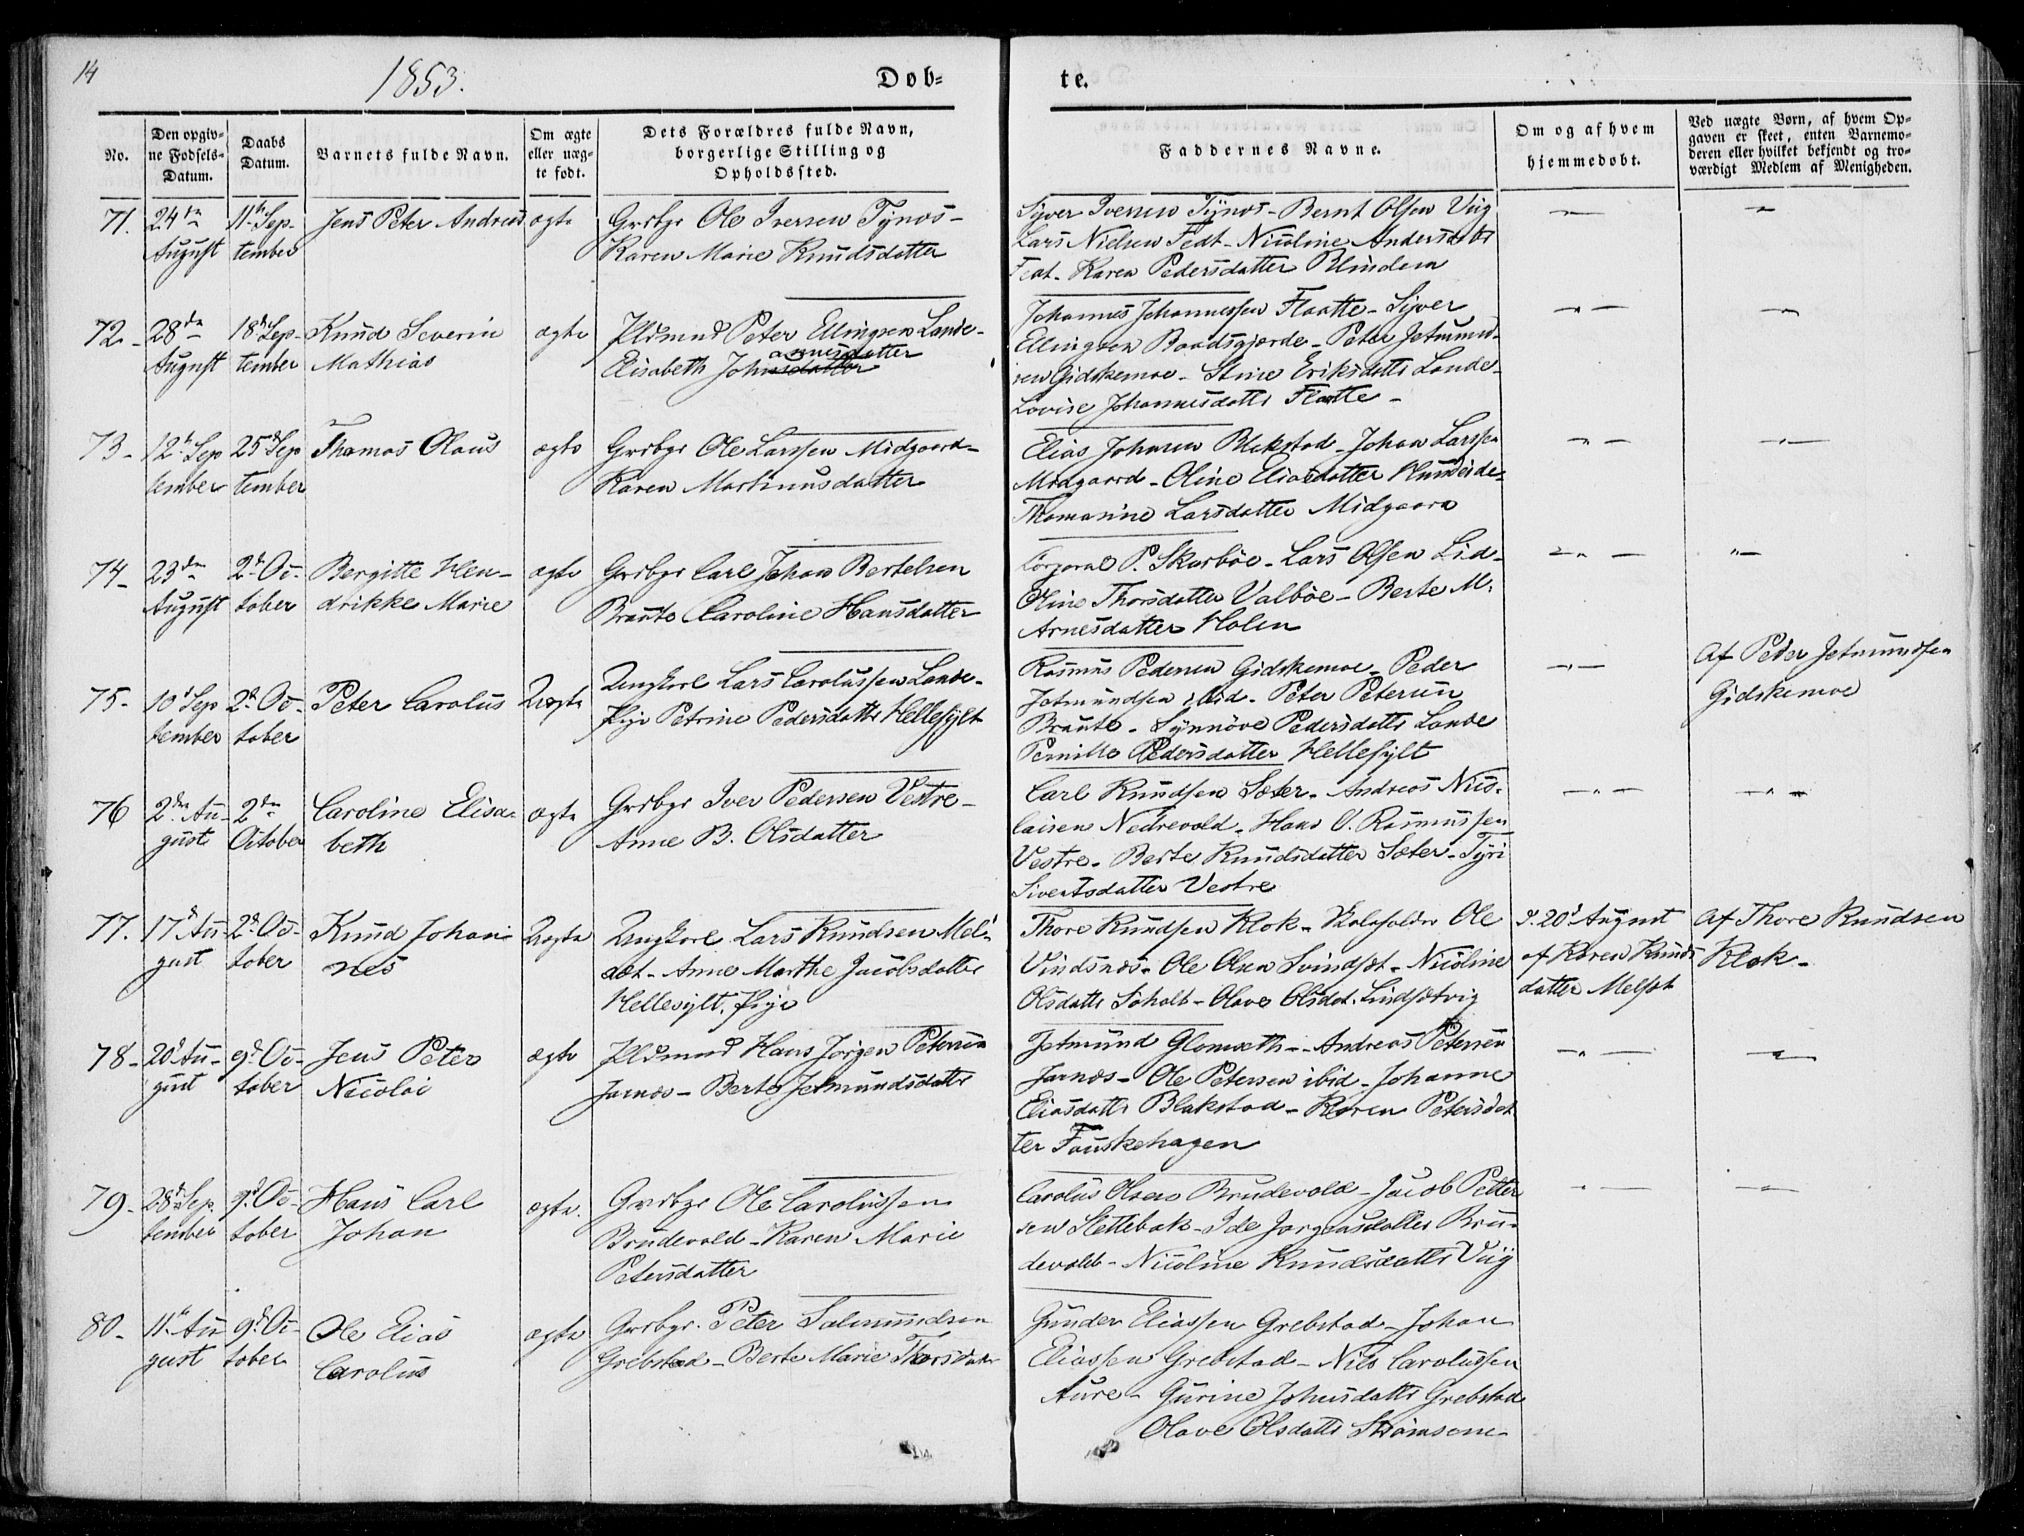 14
1853.
Døb-
te.
No.
Den opgiv-
ne Fødsels-
Datum.
Daabs
Datum.
Barnets fulde Navn.
Om ægte
eller uæg-
te født.
Dets Forældres fulde Navn,
borgerlige Stilling og
Opholdssted.
Faddernes Navne.
Om og af hvem
hjemmedøbt.
Ved uægte Børn, af hvem Op-
gaven er skeet, enten Barnemo-
deren eller hvilket bekjendt og tro-
værdigt Medlem af Menigheden.
71.
24de
August
11te Sep-
tember
Jens Peter Andreas
ægte
Grdbgr Ole Iversen Tynæs-
Karen Marie Knudsdatter
Siver Iversen Tynæs - Bernt Olsen Viig
Lars Nielsen Fedt - Nicoline Andersdattr
Fedt - Karen Pedersdatter Blindem
72.
28de
August
18de Sep-
tember
Knud Severin
Mathias
ægte
Pldsmnd Peter Ellingsen Lande-
Elisabeth Johannesdatter
Johannes Johannessen Flaatte - Siver
Ellingsen Baadsgjerde - Peter Jetmund-
sen Gidskemoe - Stine Eriksdattr Lande-
Lovise Johannesdattr Flatte -
73-
12te Sep
tember
25de Sep
tember
Thomas Olaus
ægte
Grdbgr Ole Larssen Midgaard-
Karen Martinusdatter
Elias Johnsen Blakstad - Johan Larssen
Midgaard - Oline Eliasdatter Hundeide-
Thomasine Larsdatter Midgaard
74-
23de
August
2de Oc-
tober
Bergitte Hen-
drikke Marie
ægte
Grdbgr Carl Johan Bertelsen
Braute Caroline Hansdatter
Corporal P. Skarbøe - Lars Olsen Lid-
Oline Thorsdatter Valbøe - Berte M.
Arnesdatter Holen
75-
10de Sep
tember
2de Oc-
tober
Peter Carolus
Uægte
Ungkarl Lars Carolussen Lande-
Pige Petrine Pedersdattr Hellesylt
Rasmus Pedersen Gidskemoe - Peder
Jetmundsen ibid - Peter Petersen
Braute - Synnøve Pedersdattr Lande
Pernille Pedersdatter Hellesylt
Af Peder Jetmundsen
Gidskemoe
76
2den Au-
gust
2den
October
Caroline Elisa-
beth
ægte
Grdbgr Iver Pedersen Vestre-
Anne B. Olsdatter
Carl Knudsen Sæter - Andreas Nico-
laisen Nedrevold - Hans O. Rasmussen
Vestre - Berte Knudsdatter Sæter - Tyri
Sivertsdatter Vestre
77.
17de Au-
gust
2de Oc-
tober
Knud Johan-
nes
Uægte
Ungkarl Lars Knudsen Mel-
sæt - Anne Marthe Jacobsdatter
Hellesylt, Pige
Thore Knudsen Klok - Skoleholder Ole
Vindsnæs - Ole Olsen Svindsæt - Nicoline
Olsdattr Soholt - Olave Olsdat. Lindsætvig
d. 20de August
af Karen Knuds
datter Melsæt
Af Thore Knudsen
Klok-
78-
20de Au-
gust
9de Oc-
tober
Jens Peter
Nicolai
ægte
Pldsmnd Hans Jørgen Petersen
Jarnæs - Berte Jetmundsdattr
Jetmund Glomseth - Andreas Petersen
Jarnæs - Ole Petersen ibid - Johanne
Eliasdattr Blakstad - Karen Petersdat
ter Fauskehagen
79-
28de Sep
tember
9de Oc-
tober
Hans Carl
Johan
ægte.
Grdbgr Ole Carolussen
Brudevold - Karen Marie
Petersdatter
Carolus Olsen Brudevold - Jacob Petter
sen Slettebak - Ide Jørgensdatter Bru-
devold - Nicoline Knudsdattr Viig
80-
11te Au-
gust
9de Oc-
tober
Ole Elias
Carolus
ægte
Grdbgr. Peter Salmundsen
Grebstad - Berte Marie Thorsdatr
Gunder Eliassen Grebstad - Johan
Eliassen Grebstad - Nils Carolussen
Aure - Gurine Johnsdattr Grebstad
Olave Olsdattr Strømsem-